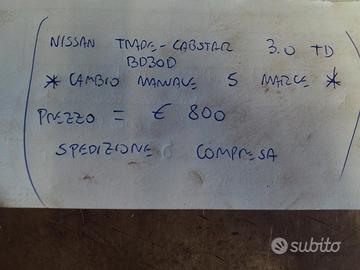 NISSAN TRADE-CABSTAR 3.0 TD
BD30D
* CAMBIO MANUALE 5 MARCE *
PREZZO = € 800
SPEDIZIONE COMPRESA
subito